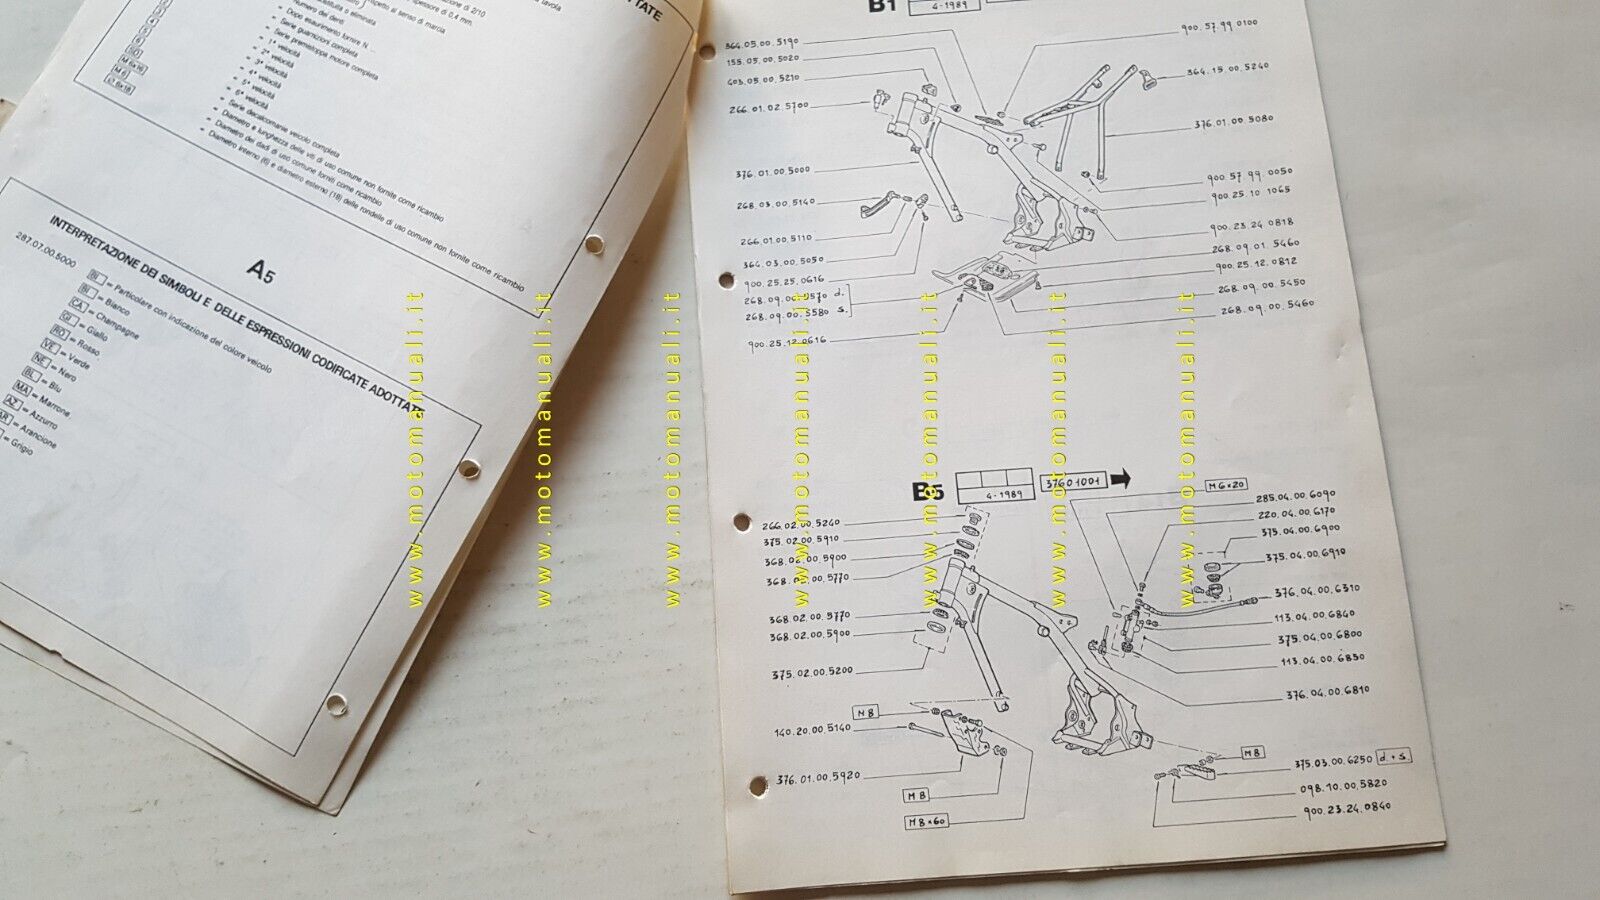 TTATE
di 2/10
spessore di 0,4 mm.
rispetto al senso di marcia
= Numero dei denti
= Dopo esaurimento fornire N ...
= Serie guarnizioni completa
= Serie premistoppa motore completa
= 1ª velocità
= 2ª velocità
= 3ª velocità
= 4ª velocità
= 5ª velocità
= 6ª velocità
= Serie decalcomanie veicolo completa
= Diametro e lunghezza delle viti di uso comune non fornite come ricambio
= Diametro dei dadi di uso comune forniti come ricambio
= Diametro interno (6) e diametro esterno (18) delle rondelle di uso comune non fornite come ricambio
SD
M 6x16
M 6
Ø 6x18
A5
INTERPRETAZIONE DEI SIMBOLI E DELLE ESPRESSIONI CODIFICATE ADOTTATE
287.07.00.5000
BI = Particolare con indicazione del colore veicolo
BI = Bianco
CA = Champagne
GI = Giallo
RO = Rosso
VE = Verde
NE = Nero
BL = Blu
MA = Marrone
AZ = Azzurro
AR = Arancione
= Grigio
B1
4-1989
364.05.00.5190
155.05.00.5020
403.05.00.5210
266.01.02.5700
376.01.00.5000
268.03.00.5140
266.01.00.5110
364.03.00.5050
900.25.25.0616
268.09.00.5570 d.
268.09.00.5580 s.
900.25.12.0616
900.57.99.0100
364.15.00.5240
376.01.00.5080
900.57.99.0050
900.25.10.1065
900.23.24.0818
268.09.01.5460
900.25.12.0812
268.09.00.5450
268.09.00.5460
B5
4-1989
37601001
M6x20
266.02.00.5240
375.02.00.5910
368.02.00.5900
368.02.00.5770
368.02.00.5770
368.02.00.5900
375.02.00.5200
M8
140.20.00.5140
376.01.00.5920
M8
M8x60
285.04.00.6090
220.04.00.6170
375.04.00.6900
375.04.00.6910
376.04.00.6310
113.04.00.6840
375.04.00.6800
113.04.00.6850
376.04.00.6810
M8
375.03.00.6250 d.+s.
098.10.00.5820
900.23.24.0840
www.motomanuali.it
www.motomanuali.it
www.motomanuali.it
www.motomanuali.it
www.motomanuali.it
www.motomanuali.it
www.motomanuali.it